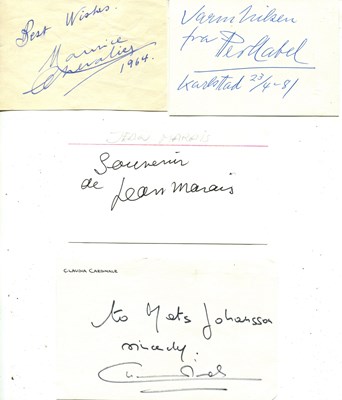 Best Wishes.
Maurice
Chevalier
1964.
Varm hilsen
fra
Karlstad 23/4-81
JEAN MARAIS
Souvenir
de Jean Marais
CLAUDIA CARDINALE
to Mats Johansson
sincerely: